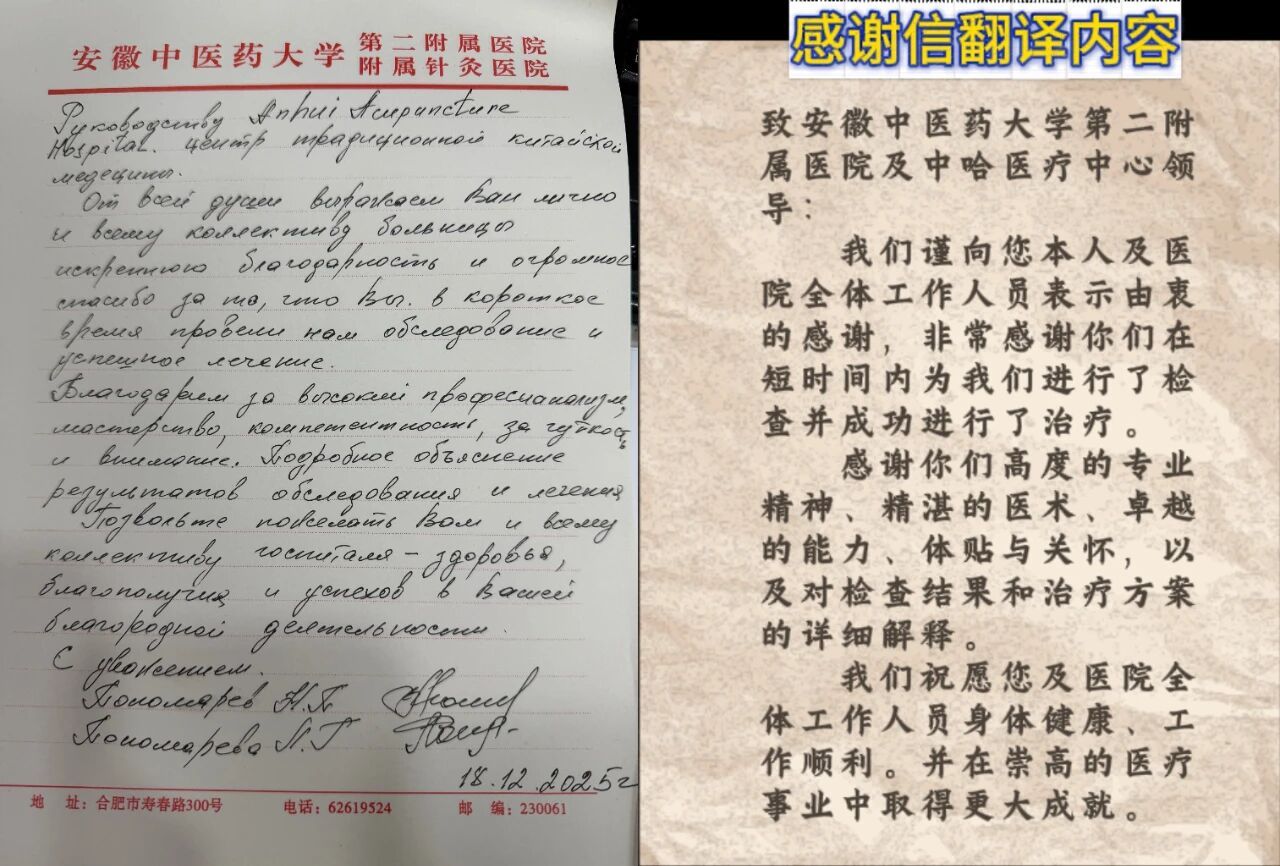 安徽中医药大学 第二附属医院
附属针灸医院
Руководству Anhui Acupuncture
Hospital. центр традиционной китайской
медецины.
От всей души выражаем Вам лично
и всему коллективу больницы
искреннюю благодарность и огромное
спасибо за то, что Вы. в короткое
время провели нам обследование и
успешное лечение.
Благодарим за высокий професианализм,
мастерство, компетентность, за чуткость
и внимание. Подробное объяснение
результатов обследования и лечения
Позвольте пожелать Вам и всему
коллективу госпиталя – здоровья,
благополучия и успехов в Вашей
благородной деятельности.
С уважением.
Пономарев Н.П
Пономарева Л.Г
18.12.2025г
地 址：合肥市寿春路300号 电话：62619524 邮 编：230061
感谢信翻译内容
致安徽中医药大学第二附
属医院及中哈医疗中心领
导：
我们谨向您本人及医
院全体工作人员表示由衷
的感谢，非常感谢你们在
短时间内为我们进行了检
查并成功进行了治疗。
感谢你们高度的专业
精神、精湛的医术、卓越
的能力、体贴与关怀，以
及对检查结果和治疗方案
的详细解释。
我们祝愿您及医院全
体工作人员身体健康、工
作顺利。并在崇高的医疗
事业中取得更大成就。